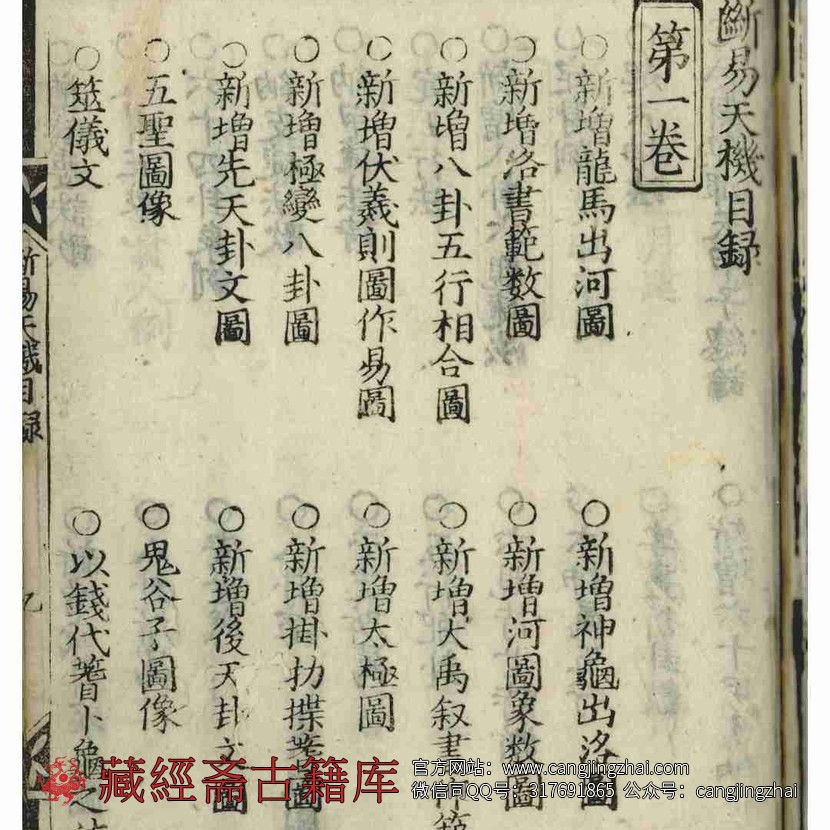 斷易天機目録
第一卷
○新增龍馬出河圖
○新增神龜出洛圖
○新增洛書範数圖
○新增河圖象数圖
○新增八卦五行相合圖
○新增大禹叙書
○新增伏羲則圖作易圖
○新增太極圖
○新增極變八卦圖
○新增掛扐揲蓍圖
○新增先天卦文圖
○新增後天卦文圖
○五聖圖像
○鬼谷子圖像
○筮儀文
○以錢代蓍卜龜之
斷易天機目録
藏經斋古籍库
官方网站：www.cangjingzhai.com
微信同QQ号：317691865 公众号：cangjingzhai